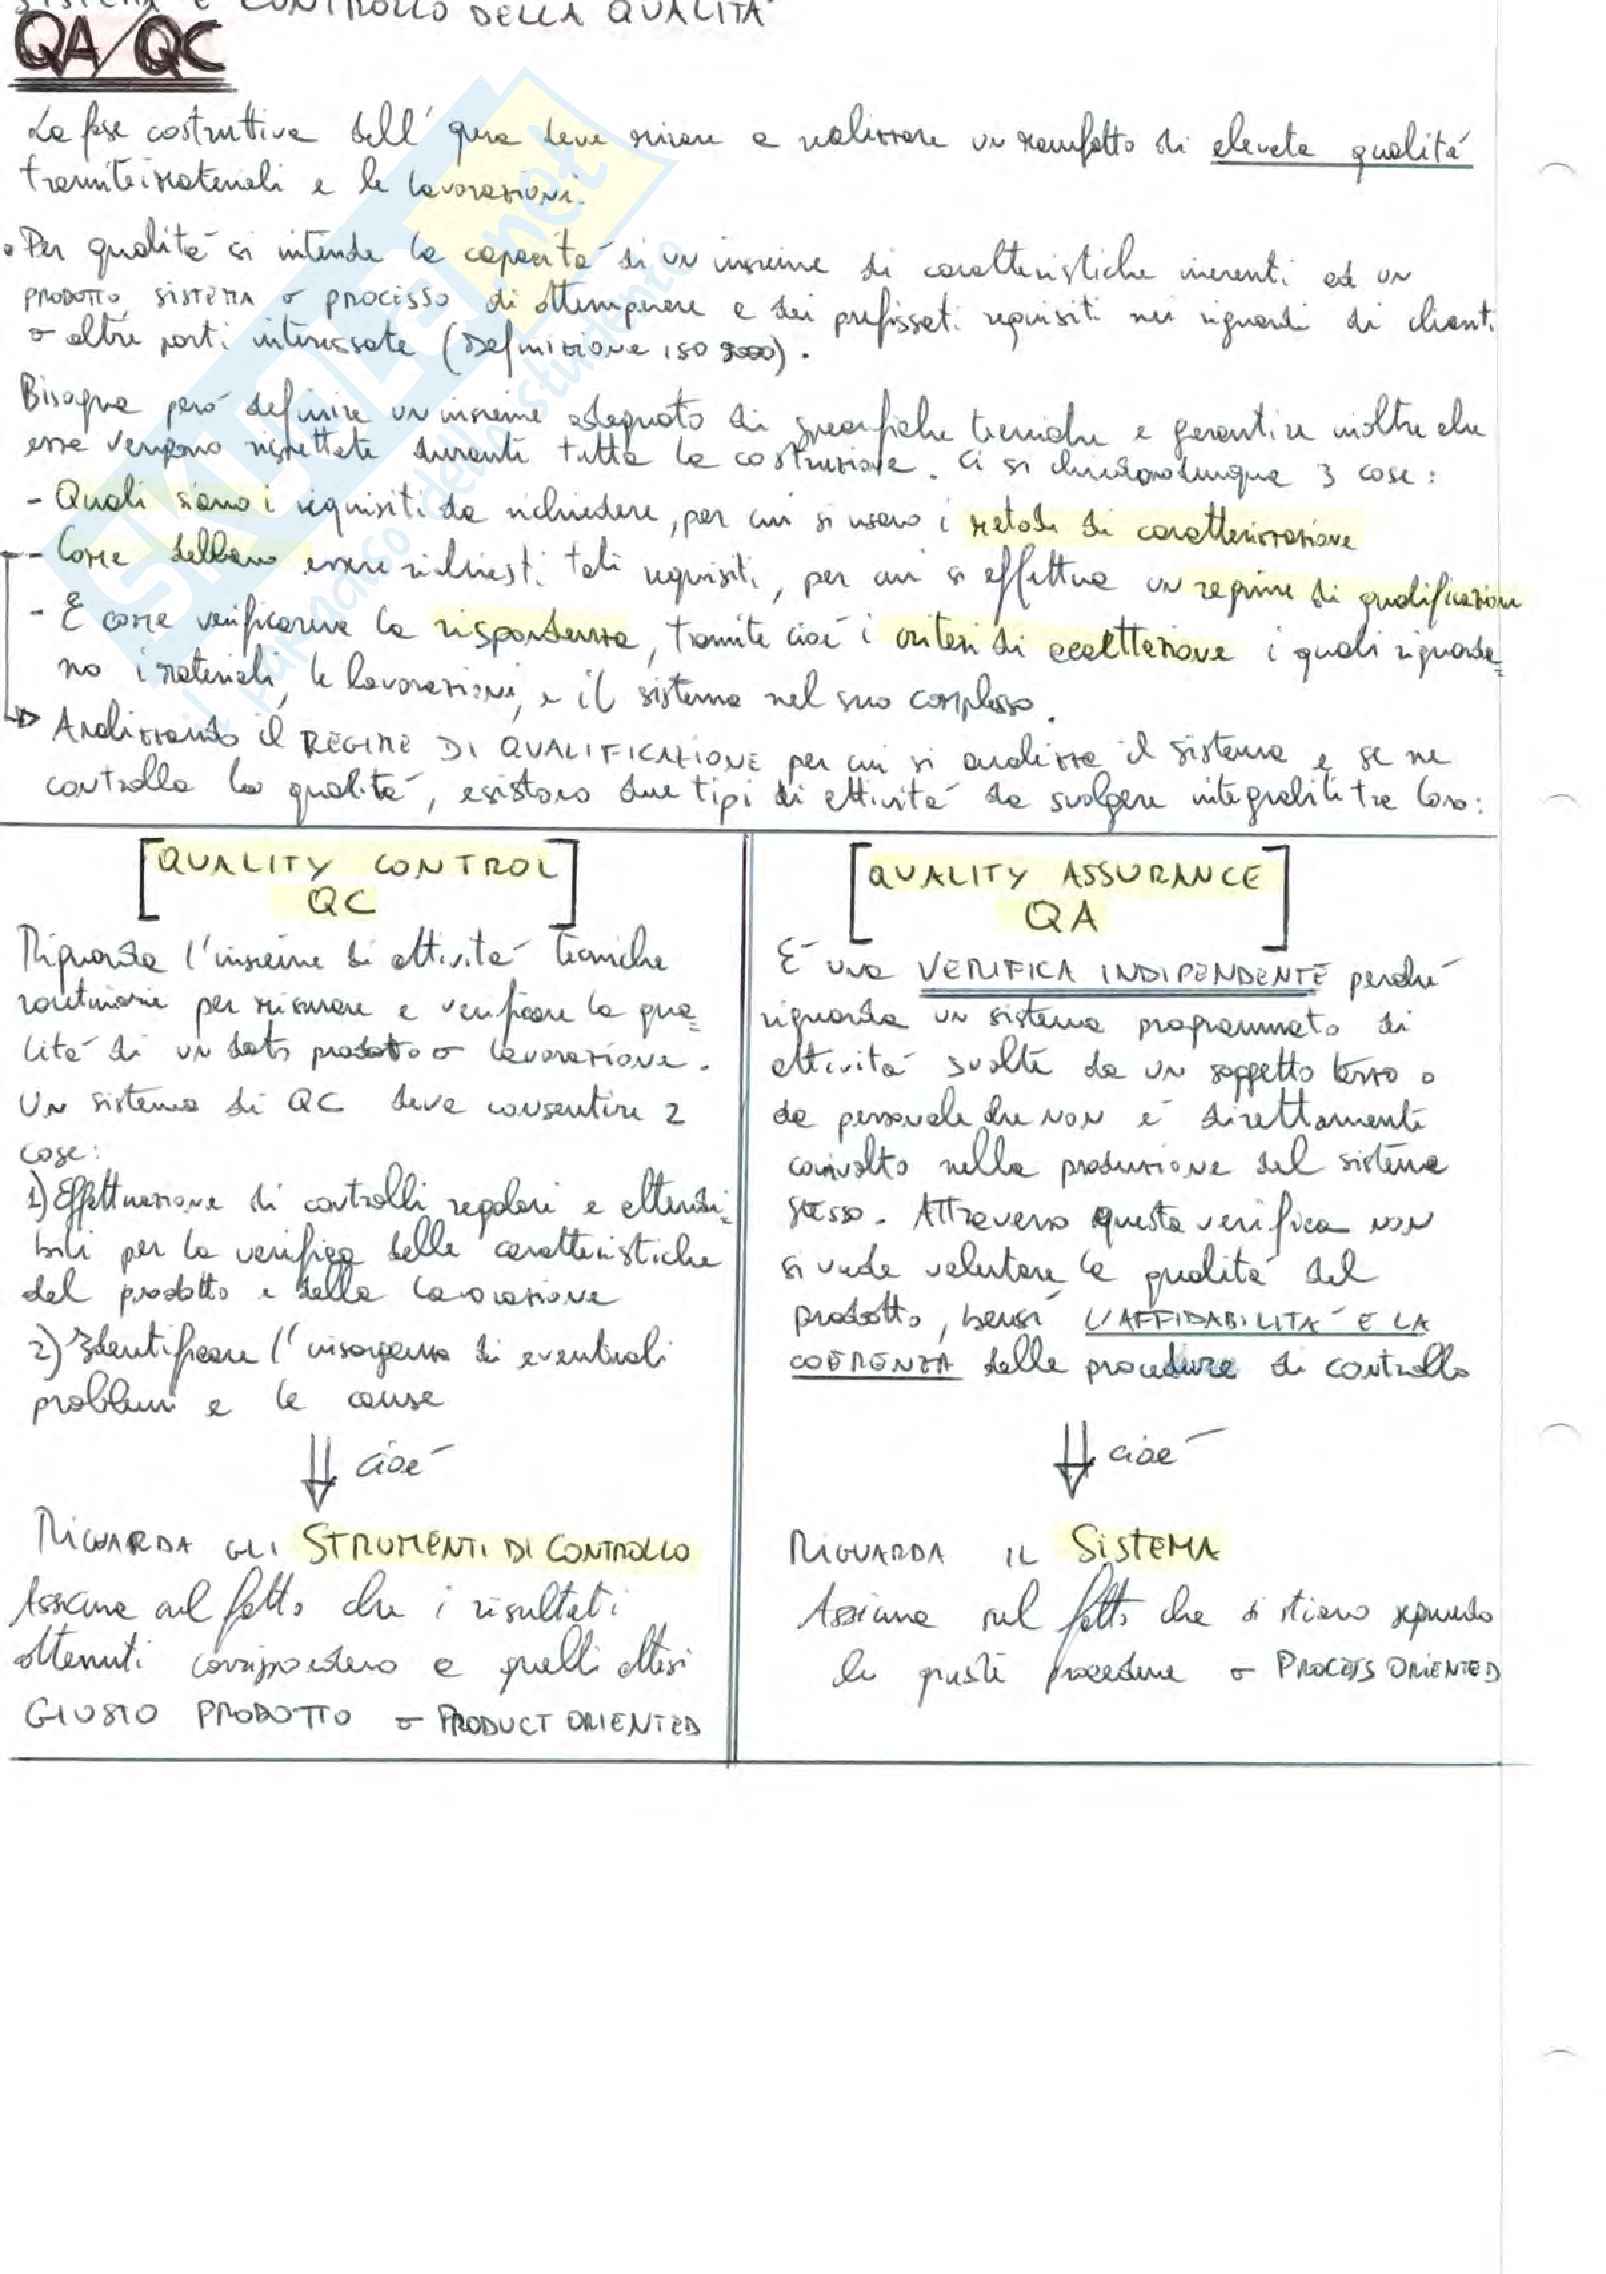 SISTEMA E CONTROLLO DELLA QUALITA'
QA/QC
La fase costruttiva dell'opera deve mirare a realizzare un manufatto di elevata qualità
tramite i materiali e le lavorazioni.
• Per qualità si intende la capacità di un insieme di caratteristiche inerenti ad un
PRODOTTO, SISTEMA o PROCESSO di ottemperare a dei prefissati requisiti nei riguardi di clienti
o altre parti interessate (Definizione ISO 9000).
Bisogna però definire un insieme adeguato di specifiche tecniche e garantire inoltre che
esse vengano rispettate durante tutta la costruzione. Ci si chiedono dunque 3 cose:
- Quali siano i requisiti da richiedere, per cui si usano i metodi di caratterizzazione
- Come debbano essere richiesti tali requisiti, per cui si effettua un regime di qualificazione
- E come verificarne la rispondenza, tramite cioè i criteri di accettazione i quali riguarda=
no i materiali, le lavorazioni, e il sistema nel suo complesso.
Analizzando il REGIME DI QUALIFICAZIONE per cui si analizza il sistema e se ne
controlla la qualità, esistono due tipi di attività da svolgere integrabili tra loro:
[QUALITY CONTROL
QC]
Riguarda l'insieme di attività tecniche
routinarie per misurare e verificare la qua=
lità di un dato prodotto o lavorazione.
Un sistema di QC deve consentire 2
cose:
1) Effettuazione di controlli regolari e attendi=
bili per la verifica delle caratteristiche
del prodotto e della lavorazione
2) Identificare l'insorgenza di eventuali
problemi e le cause
⇓ cioè
RIGUARDA GLI STRUMENTI DI CONTROLLO
Assicura sul fatto che i risultati
ottenuti corrispondano a quelli attesi
GIUSTO PRODOTTO o PRODUCT ORIENTED
[QUALITY ASSURANCE
QA]
È una VERIFICA INDIPENDENTE perché
riguarda un sistema programmato di
attività svolte da un soggetto terzo o
da personale che non è direttamente
coinvolto nella produzione del sistema
stesso. Attraverso questa verifica non
si vuole valutare la qualità del
prodotto, bensì L'AFFIDABILITÀ E LA
COERENZA delle procedure di controllo
⇓ cioè
RIGUARDA IL SISTEMA
Assicura sul fatto che si stiano seguendo
le giuste procedure o PROCESS ORIENTED
SKUOLA.net
il paradiso dello studente